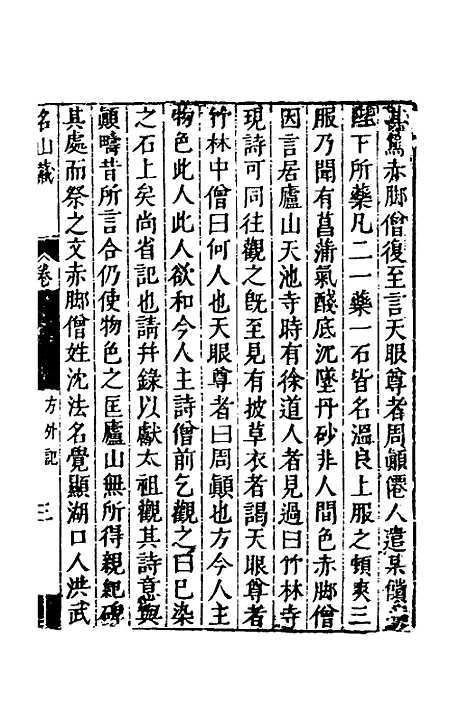 其篤赤脚僧復至言天眼尊者周顛僊人遣某饋
陛下所藥凡二一藥一石皆名溫良上服之頓爽三
服乃聞有菖蒲氣醆底沉墜丹砂非人間色赤脚僧
因言居廬山天池寺時有徐道人者見過曰竹林寺
現詩可同往觀之旣至見有披草衣者謁天眼尊者
竹林中僧曰何人也天眼尊者曰周顛也方今人主
物色此人此人欲和今人主詩僧前乞觀之曰巳染
之石上矣尚省記也請幷錄以獻太祖觀其詩意與
顛疇昔所言合仍使物色之匡廬山無所得親紀碑
其處而祭之文赤脚僧姓沈法名覺顯湖口人洪武
名山藏
卷
方外記
三